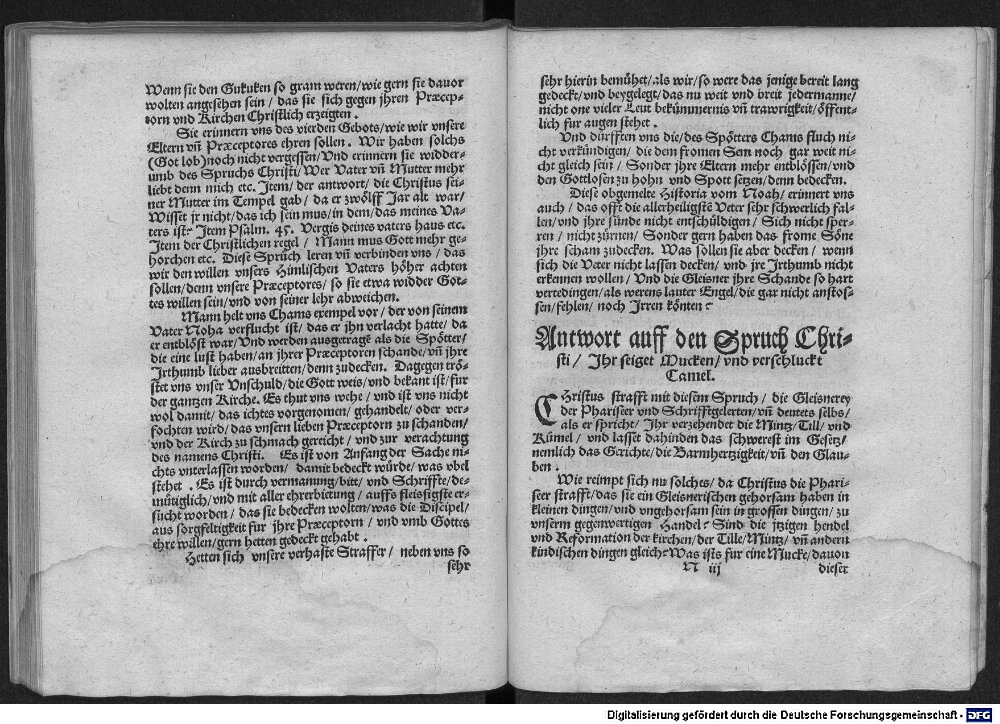 Wenn sie den Gukuken so gram weren/wie gern sie dauor
wolten angesehen sein / das sie sich gegen jhren Præcep-
torn vnd Kirchen Christlich erzeigten .
Sie erinnern vns des vierden Gebots/wie wir vnsere
Eltern vñ Præceptores ehren sollen . Wir haben solchs
(Got lob) noch nicht vergessen/Vnd erinnern sie widder-
umb des Spruchs Christi/Wer Vater vñ Mutter mehr
liebt denn mich etc. Jtem/ der antwort/ die Christus sei-
ner Mutter im Tempel gab/ da er zwölff Jar alt war/
Wisst jr nicht/das ich sein mus/in dem/das meines Va-
ters ist? Jtem Psalm. 45. Vergis deines vaters haus etc.
Jtem der Christlichen regel / Mann mus Gott mehr ge-
horchen etc. Diese Sprüch leren vñ verbinden vns / das
wir den willen vnsers Himlischen Vaters höher achten
sollen/denn vnsere Præceptores/ so sie etwa widder Got-
tes willen sein/vnd von seiner lehr abweichen.
Mann helt vns Chams exempel vor / der von seinem
Vater Noha verflucht ist/das er jhn verlacht hatte/ da
er entblöst war/Vnd werden ausgetragē als die Spötter/
die eine lust haben/an jhrer Præceptoren schande/vñ jhre
Jrthumb lieber ausbreitten/denn zudecken. Dagegen trö-
stet vns vnser Vnschuld/die Gott weis/vnd bekant ist/fur
der gantzen Kirche. Es thut vns wehe / vnd ist vns nicht
wol damit/ das ichtes vorgenomen/ gehandelt/ oder ver-
fochten wird/das vnsern lieben Præceptorn zu schanden/
vnd der Kirch zu schmach gereicht / vnd zur verachtung
des namens Christi. Es ist von Anfang der Sache ni-
chts vnterlassen worden/ damit bedeckt würde/ was vbel
stehet . Es ist durch vermanung/bitt/ vnd Schriffte/de-
mütiglich/vnd mit aller ehrerbietung / auffs fleissigste er-
sucht worden / das sie bedecken wolten/was die Discipel/
aus sorgfeltigkeit fur jhre Præceptorn / vnd vmb Gottes
ehre willen/gern hetten gedeckt gehabt .
Hetten sich vnsere verhaste Straffer/ neben vns so
sehr
sehr hierin bemühet/als wir/so were das jenige bereit lang
gedeckt/vnd beygelegt/das nu weit vnd breit jedermanne/
nicht one vieler Leut bekümmernis vñ trawrigkeit/öffent-
lich fur augen stehet .
Vnd dürfften vns die/des Spötters Chams fluch ni-
cht verkündigen/ die dem fromen Sem noch gar weit ni-
cht gleich sein / Sonder jhre Eltern mehr entblössen/vnd
den Gottlosen zu hohn vnd Spott setzen/denn bedecken.
Diese obgemelte Historia vom Noah/ erinnert vns
auch / das offt die allerheiligstē Veter sehr schwerlich fal-
len/vnd jhre sünde nicht entschüldigen / Sich nicht sper-
ren / nicht zürnen/ Sonder gern haben das frome Söne
jhre scham zudecken. Was sollen sie aber decken / wenn
sich die Veter nicht lassen decken/ vnd jre Jrthumb nicht
erkennen wollen / Vnd die Gleisner jhre Schande so hart
vertedingen/als werens lauter Engel/die gar nicht anstos-
sen/fehlen/ noch Jrren könten?
Antwort auff den Spruch Chri-
sti/ Jhr seiget Mucken/ vnd verschluckt
Camel.
CHristus strafft mit diesem Spruch / die Gleisnerey
der Phariseer vnd Schrifftgelerten/vñ deutets selbs/
als er spricht/ Jhr verzehendet die Mintz/Till/ vnd
Kümel / vnd lasset dahinden das schwerest im Gesetz/
nemlich das Gerichte/die Barmhertzigkeit/vñ den Glau-
ben .
Wie reimpt sich nu solches/ da Christus die Phari-
seer strafft/das sie ein Gleisnerischen gehorsam haben in
kleinen dingen/vnd vngehorsam sein in grossen dingen/ zu
vnserm gegenwertigen Handel? Sind die jtzigen hendel
vnd Reformation der kirchen/der Tille/Mintz/ vñ andern
kindischen dingen gleich? Was ists fur eine Mucke/dauon
N iij dieser
Digitalisierung gefördert durch die Deutsche Forschungsgemeinschaft - DFG